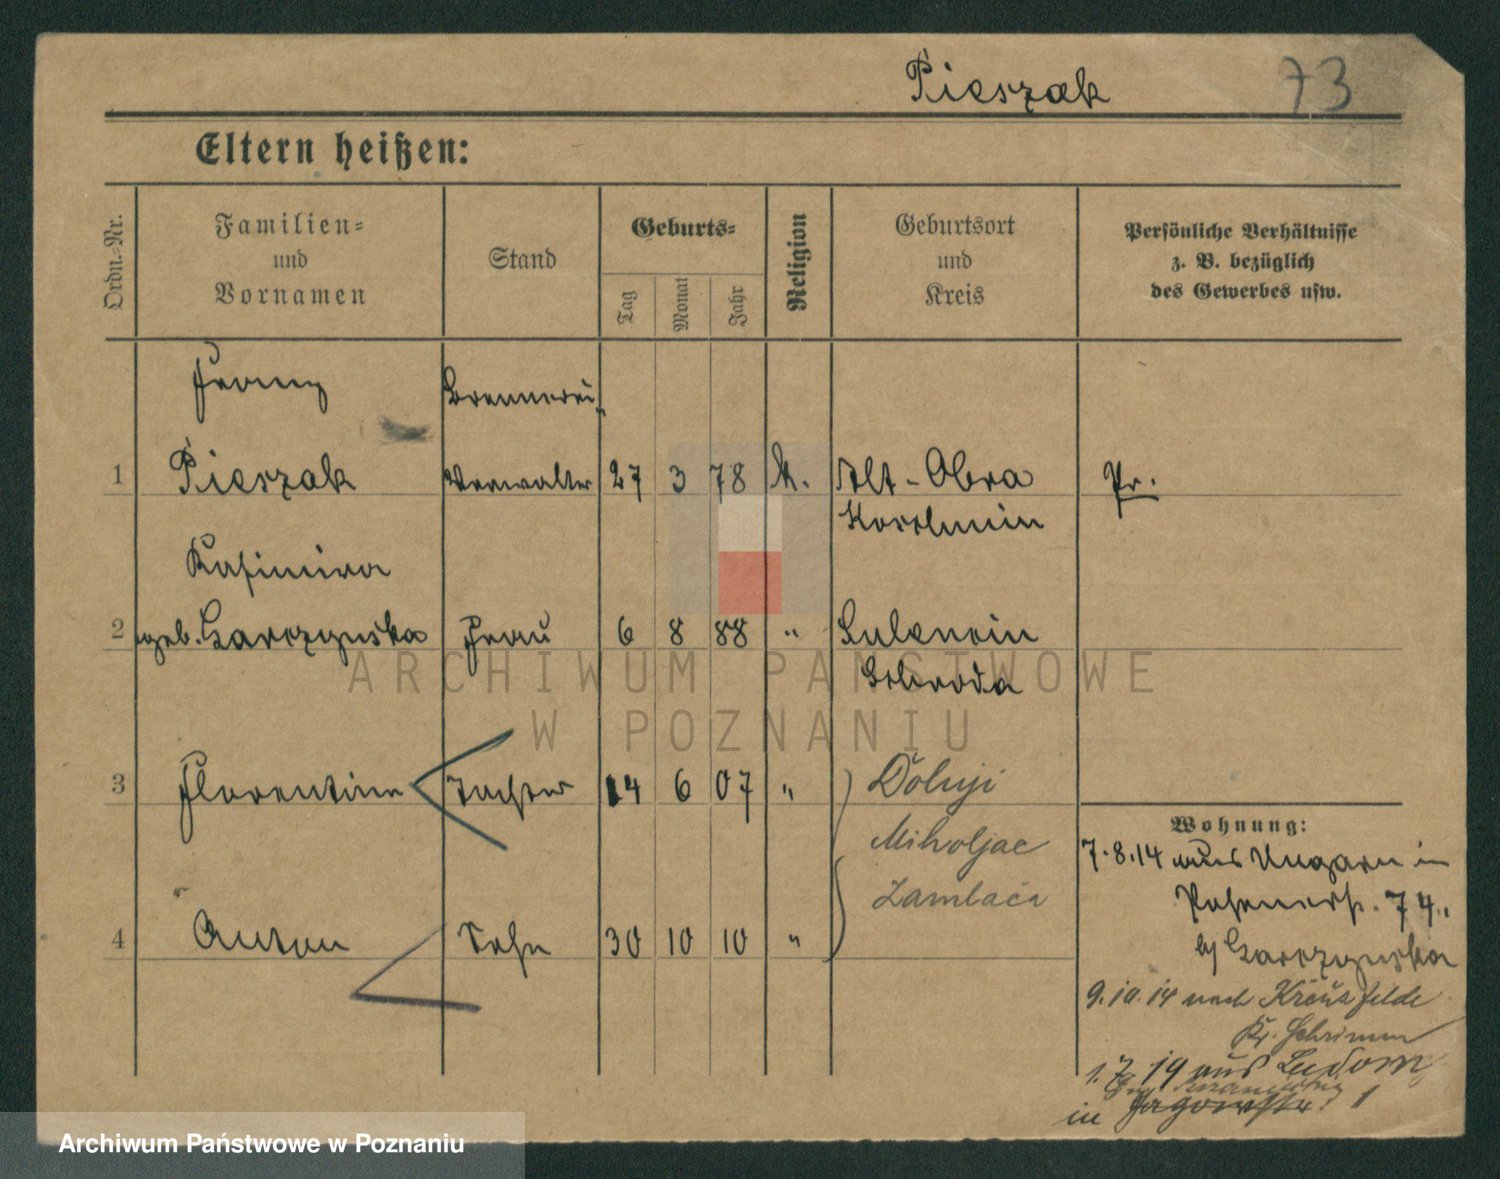 Pieszak 73
Eltern heißen:
Ordn.-Nr. Familien- und Vornamen Stand Geburts- Tag Monat Jahr Religion Geburtsort und Kreis Persönliche Verhältnisse z. B. bezüglich des Gewerbes usw.
Franz Brennerei
1 Pieszak Verwalter 27 3 78 k. Alt-Obra Pr.
Koschmin
Kasimira
2 geb. Garczynska Frau 6 8 88 " Sulencin
Schroda
3 Florentine Tochter 14 6 07 " Dolnji
Miholjac
Zamlaća
4 Anton Sohn 30 10 10 "
Wohnung:
7.8.14 aus Ungarn in
Posenerst. 74.
bj Garczynska
9.10.14 nach Kreuzfelde
Kr. Schrimm
1.7.19 aus Ludom
in Jagowstr. 1
ARCHIWUM PAŃSTWOWE
W POZNANIU
Archiwum Państwowe w Poznaniu